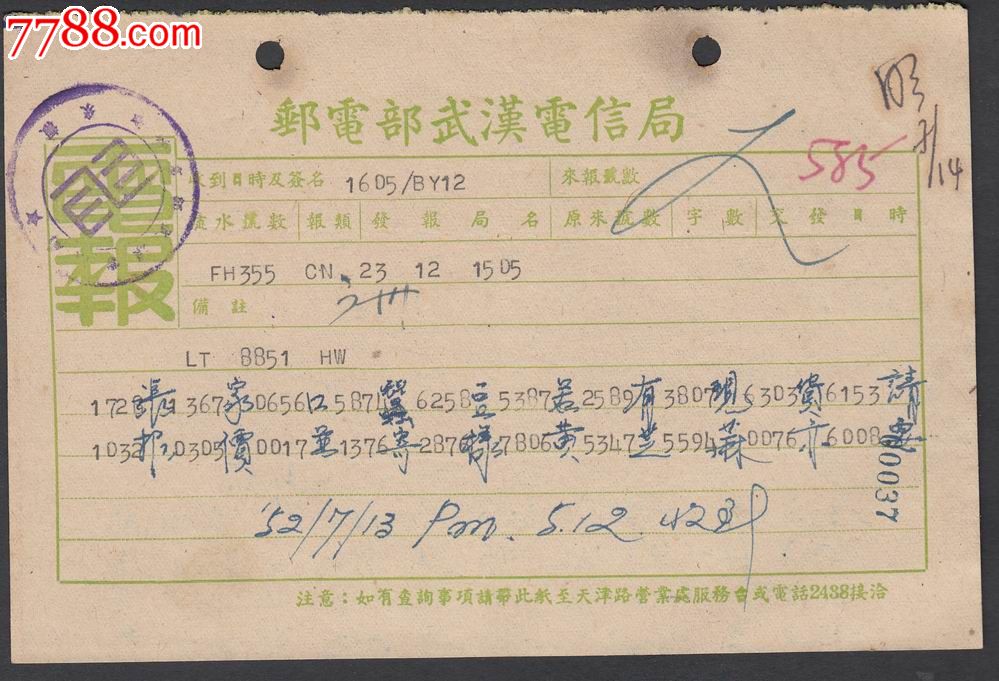 7788.com
郵電部武漢電信局
電報
收到日時及簽名 1605/BY12 來報號數 585
7/14
流水號數 報類 發報局名 原來號數 字數 交發日時
FH355 CN 23 12 1505
備註
LT 8851 HW
1728張1367家0656口5871蠶6258豆5387若2589有3807現6303貨6153請
1032報0305價0017並1376寄2876樣7806黃5347芝5594蔴0076亦6008要
00037
'52/7/13 Pm. 5.12
注意：如有查詢事項請帶此紙至天津路營業處服務台或電話2438接洽